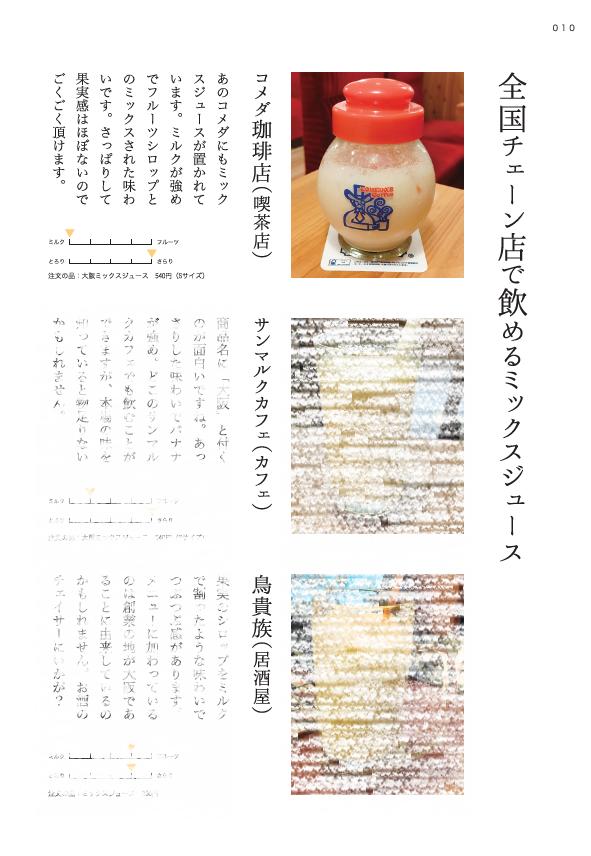 010
全国チェーン店で飲めるミックスジュース
コメダ珈琲店(喫茶店)
あのコメダにもミック
スジュースが置かれて
います。ミルクが強め
でフルーツシロップと
のミックスされた味わ
いです。さっぱりして
果実感はほぼないので
ごくごく頂けます。
ミルク フルーツ
とろり さらり
注文の品:大阪ミックスジュース 540円(Sサイズ)
サンマルクカフェ(カフェ)
商品名に「大阪」と付く
のが面白いですね。あっ
さりした味わいでバナナ
が強め。どこのサンマル
クカフェでも飲むことが
できますが、本場の味を
知っていると物足りない
かもしれません。
ミルク フルーツ
とろり さらり
注文の品:大阪ミックスジュース 540円(Sサイズ)
鳥貴族(居酒屋)
果実のシロップをミルク
で割ったような味わいで
つぶつぶ感があります。
メニューに加わっている
のは創業の地が大阪であ
ることに由来しているの
かもしれません。お酒の
チェイサーにいかが?
ミルク フルーツ
とろり さらり
注文の品:ミックスジュース